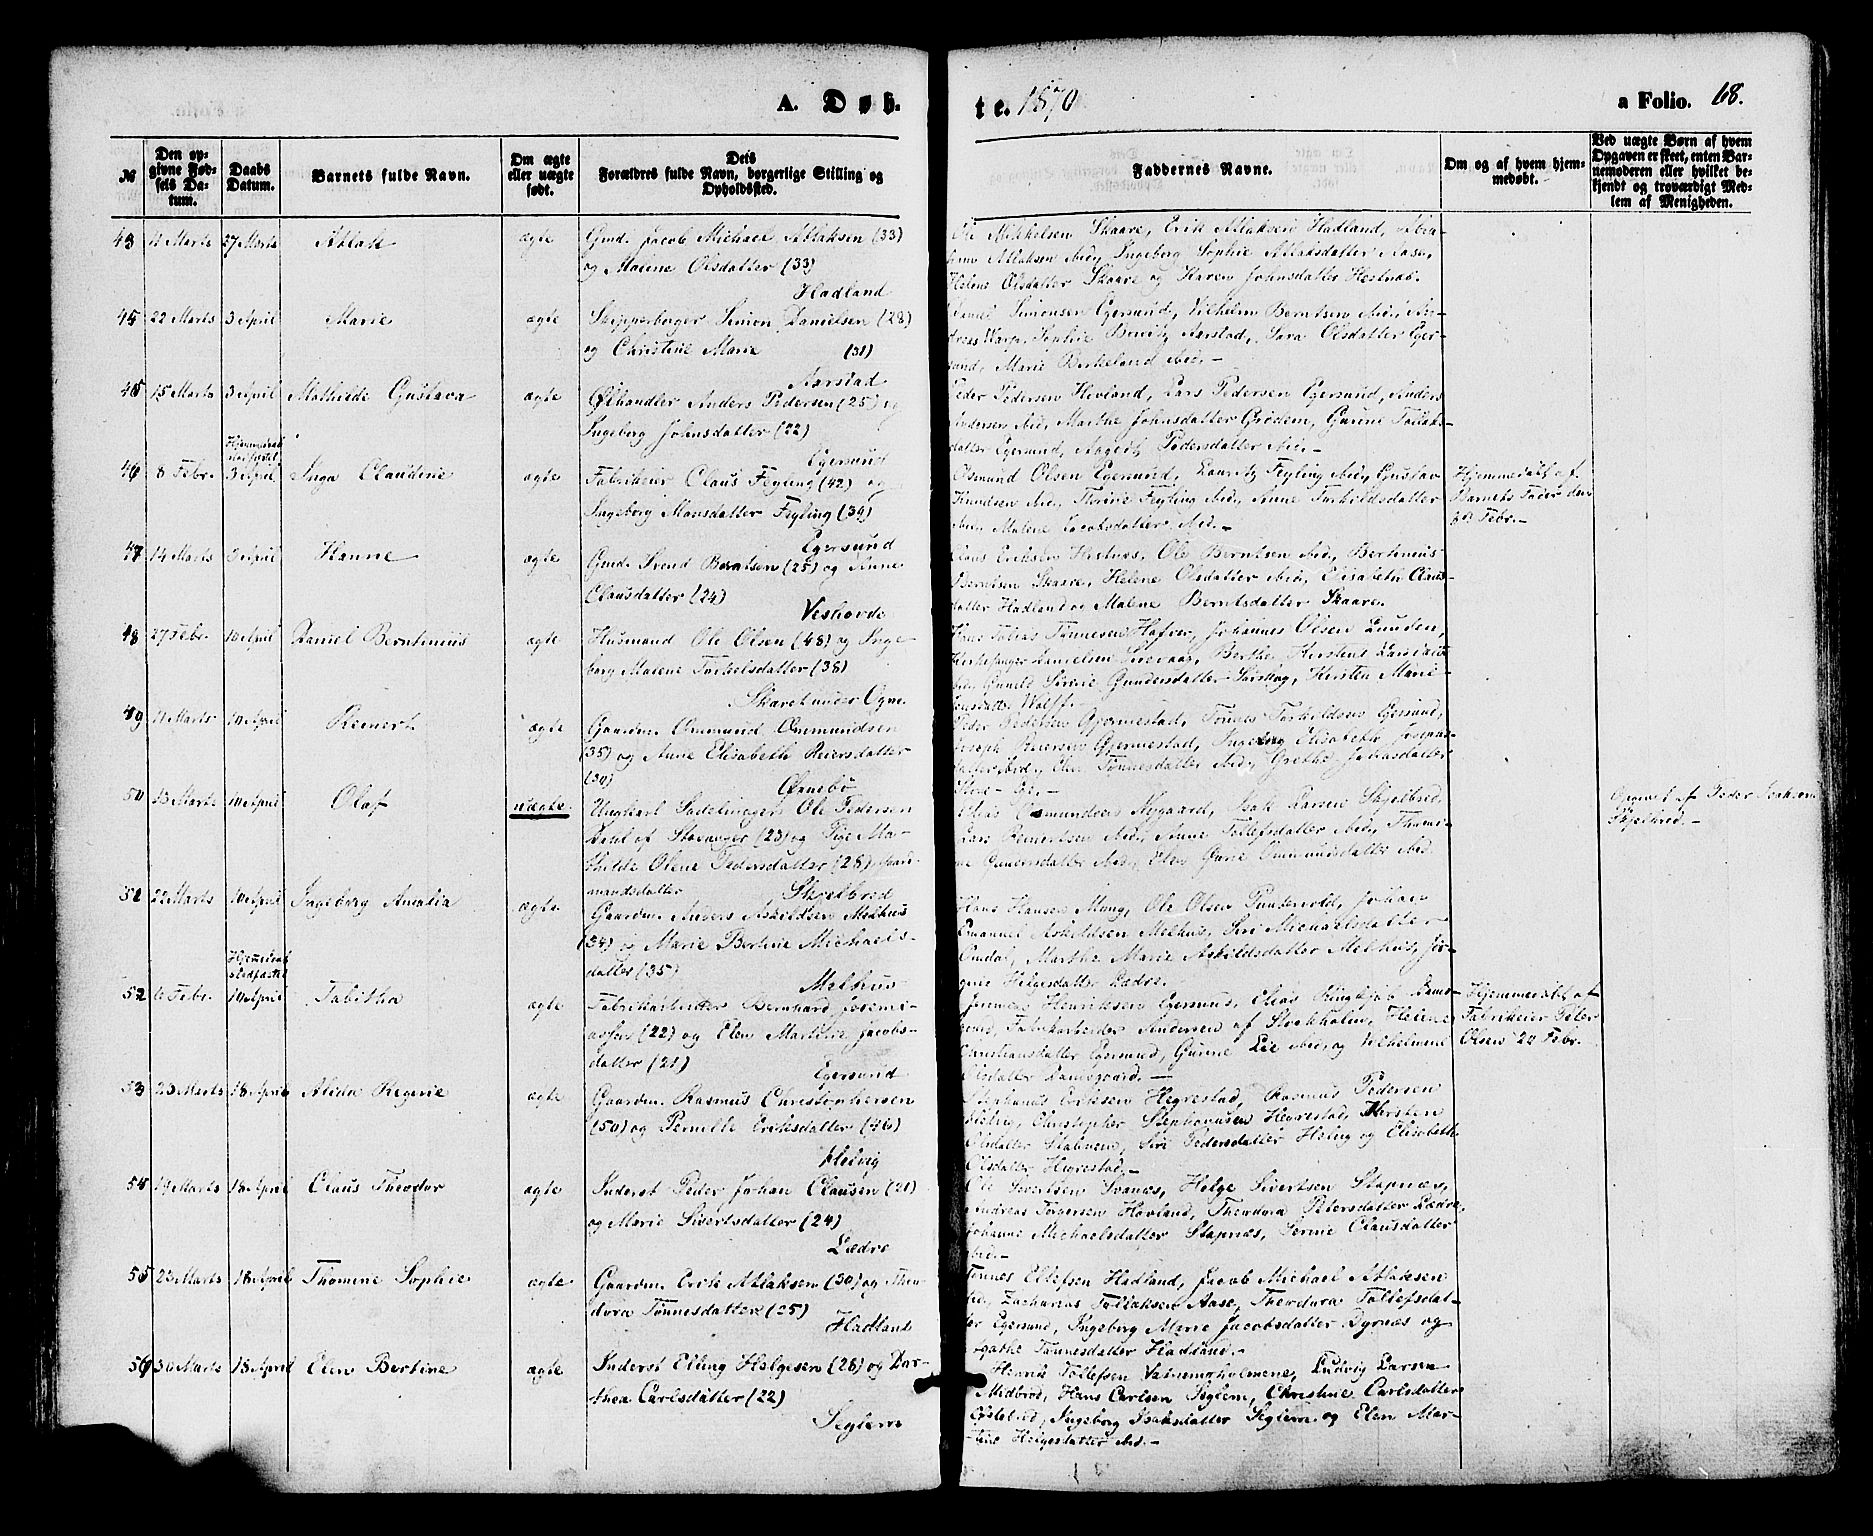 A. Døb.
te. 1870
a Folio. 68.
№
Den op-
givne Fød-
sels Da-
tum.
Daabs
Datum.
Barnets fulde Navn.
Om ægte
eller uægte
født.
Dets
Forældres fulde Navn, borgerlige Stilling og
Opholdssted.
Faddernes Navne.
Om og af hvem hjem-
medøbt.
Ved uægte Børn af hvem
Opgaven er skeet, enten Bar-
nemoderen eller hvilket be-
kjendt og troværdigt Med-
lem af Menigheden.
43 11 Marts 27 Marts Atlak ægte Gmd. Jacob Michael Atlaksen (33)
og Malene Olsdatter (33)
Hadland
Ole Mikkelsen Skaare, Erik Atlaksen Hadland, Abra-
ham Atlaksen ibid, Ingeborg Sophie Atlaksdatter Aase,
Helene Olsdatter Skaare og Karen Johnsdatter Hestnæs.
45 22 Marts 3 April Marie ægte Skipperborger Simon Danielsen (28)
og Christine Marie (31)
Aarstad
Simonsen Egersund, Vilhelm Berntsen ibid, An-
dreas Warp, Sophie Aarstad, Sara Olsdatter Eger-
sund, Marie Birkeland ibid.-
45 15 Marts 3 April Mathilde Gustava ægte Ølhandler Anders Pedersen (25) og
Ingeborg Johnsdatter (22)
Egersund
Peder Pedersen Hovland, Lars Pedersen Egersund, Anders
Andersen ibid, Marthe Johnsdatter Grødem, Gurine Tollaks-
datter Egersund, Aagot Pedersdatter ibid.-
Hjemmedøb
stadfæstet
46 8 Febr. 3 April Inga Claudine ægte Fabrikeier Claus Feyling (42) og
Ingeborg Monsdatter Feyling (39)
Egersund
Osmund Olsen Egersund, Lauritz Feyling ibid, Gustav
Knudsen ibid, Thorine Feyling ibid, Anne Torkildsdatter
ibid, Malene Jacobsdatter ibid.-
Hjemmedøbt af
Barnets Fader den
Febr.-
47 14 Marts 3 April Hanne ægte Gmd. Svend Berntsen (25) og Anne
Clausdatter (24)
Veshovde
Claus Eriksen Hestnæs, Ole Berntsen ibid, Bertinius
Berntsen Skaare, Helene Olsdatter ibid, Elisabeth Claus-
datter Hadland og Malene Berntsdatter Skaare.
48 27 Febr. 10 April Daniel Berntinius ægte Husmand Ole Olsen (48) og Inge
borg Malene Torkelsdatter (38)
Skaret under Ogne.
Hans Tobias Tønnesen Hafver, Johannes Olsen Lunden,
Kirkesanger Danielsen Sirevaag, Berthe Kirstine
ibid, Gunild Sirine Gundersdatter Kirsten Marie
Wolff.-
49 11 Marts 10 April Reinert ægte Gaardm. Ommund Ommundsen
(35) og Anne Elisabeth Reiersdatter
(30) Omnebø
Peder Pedersen Gjermestad, Tønnes Torkildsen Egersund,
Joseph Reiersen Gjermestad, Ingeborg Elisabeth Joseps-
datter ibid, Elen Tønnesdatter ibid, Grethe Johnsdatter
50 13 Marts 10 April Olaf uægte. Ungkarl Sadelmager Ole Pedersen
af Stavanger (23) og Pige Ma-
thilde Olene Pedersdatter (28) Gaard-
mandsdatter Skjelbred
Elias Osmundsen Nygaard, Isak Larsen Skjelbred,
Lars Reinertsen ibid, Anne Tollefsdatter ibid, Thomi-
ne Gunersdatter ibid, Elen Gurie Ommundsdatter ibid.
Opgivet af Peder Isaksen
Skjelbred.-
51 22 Marts 10 April Ingeborg Amalia ægte Gaardm. Anders Askildsen Melhus
(34) og Marie Bertine Michaels-
datter (35)
Melhus
Hans Hansen Mong, Ole Olsen Puntervold, Johan
Emanuel Askildsen Melhus, Siri Michaelsdatter
Omdal, Marthe Marie Askildsdatter Melhus, Jør-
gine Helgesdatter Lædre.
Hjemmedøb
stadfæstet
52 6 Febr. 10 April Tabitha ægte Fabrikarbeider Bernhard Jeremi-
assen (22) og Elen Martine Jacobs-
datter (21)
Egersund
Henriksen Egersund, Elias Ringkjøb Dams-
gaard, Fabrikarbeider Andersen af Stockholm, Helene
Christiansdatter Egersund, Gurine Lie ibid, og Wilhelmine
Olsdatter Damsgaard.-
Hjemmedøbt af
Fabrikeier Peter
Olsen 20 Febr.
53 23 Marts 18 April Alida Regine ægte Gaardm. Rasmus Christophersen
(50) og Pernille Eriksdatter (46)
Helvig
Stephanus Eriksen Hegrestad, Rasmus Pedersen
Helvig, Christopher Stephanusen Hegrestad, Kirsten
Olsdatter Skadberg, Siri Pedersdatter Helvig og Elisabeth
Olsdatter Hegrestad.-
54 19 Marts 18 April Claus Theodor ægte Inderst Peder Johan Clausen (21)
og Marie Sivertsdatter (24)
Lædre
Ole Sivertsen Svanæs, Helge Sivertsen Stapnæs,
Andreas Torgersen Hovland, Theodora Petersdatter Lædre,
Johanne Michaelsdatter Stapnæs, Serine Clausdatter
ibid.-
55 23 Marts 18 April Thomine Sophie ægte Gaardm. Erik Atlaksen (30) og Theo-
dora Tønnesdatter (25)
Hadland
Tønnes Ellefsen Hadland, Jacob Michael Atlaksen
ibid, Zacharias Tollaksen Aase, Theodora Tollefsdat-
ter Egersund, Ingeborg Marie Jacobsdatter Dyrnæs og
Agathe Tønnesdatter Hadland.-
56 30 Marts 18 April Elen Bertine ægte Inderst Elling Helgesen (26) og Dar-
thea Carlsdatter (22)
Seglem
Henrik Tollefsen Vatnemoholmene, Ludvig Larsen
Midbrød, Hans Carlsen Seglem, Christine Carlsdatter
Eftestøl, Ingeborg Isaksdatter Seglem og Elen Mar-
tine Helgesdatter ibid.-